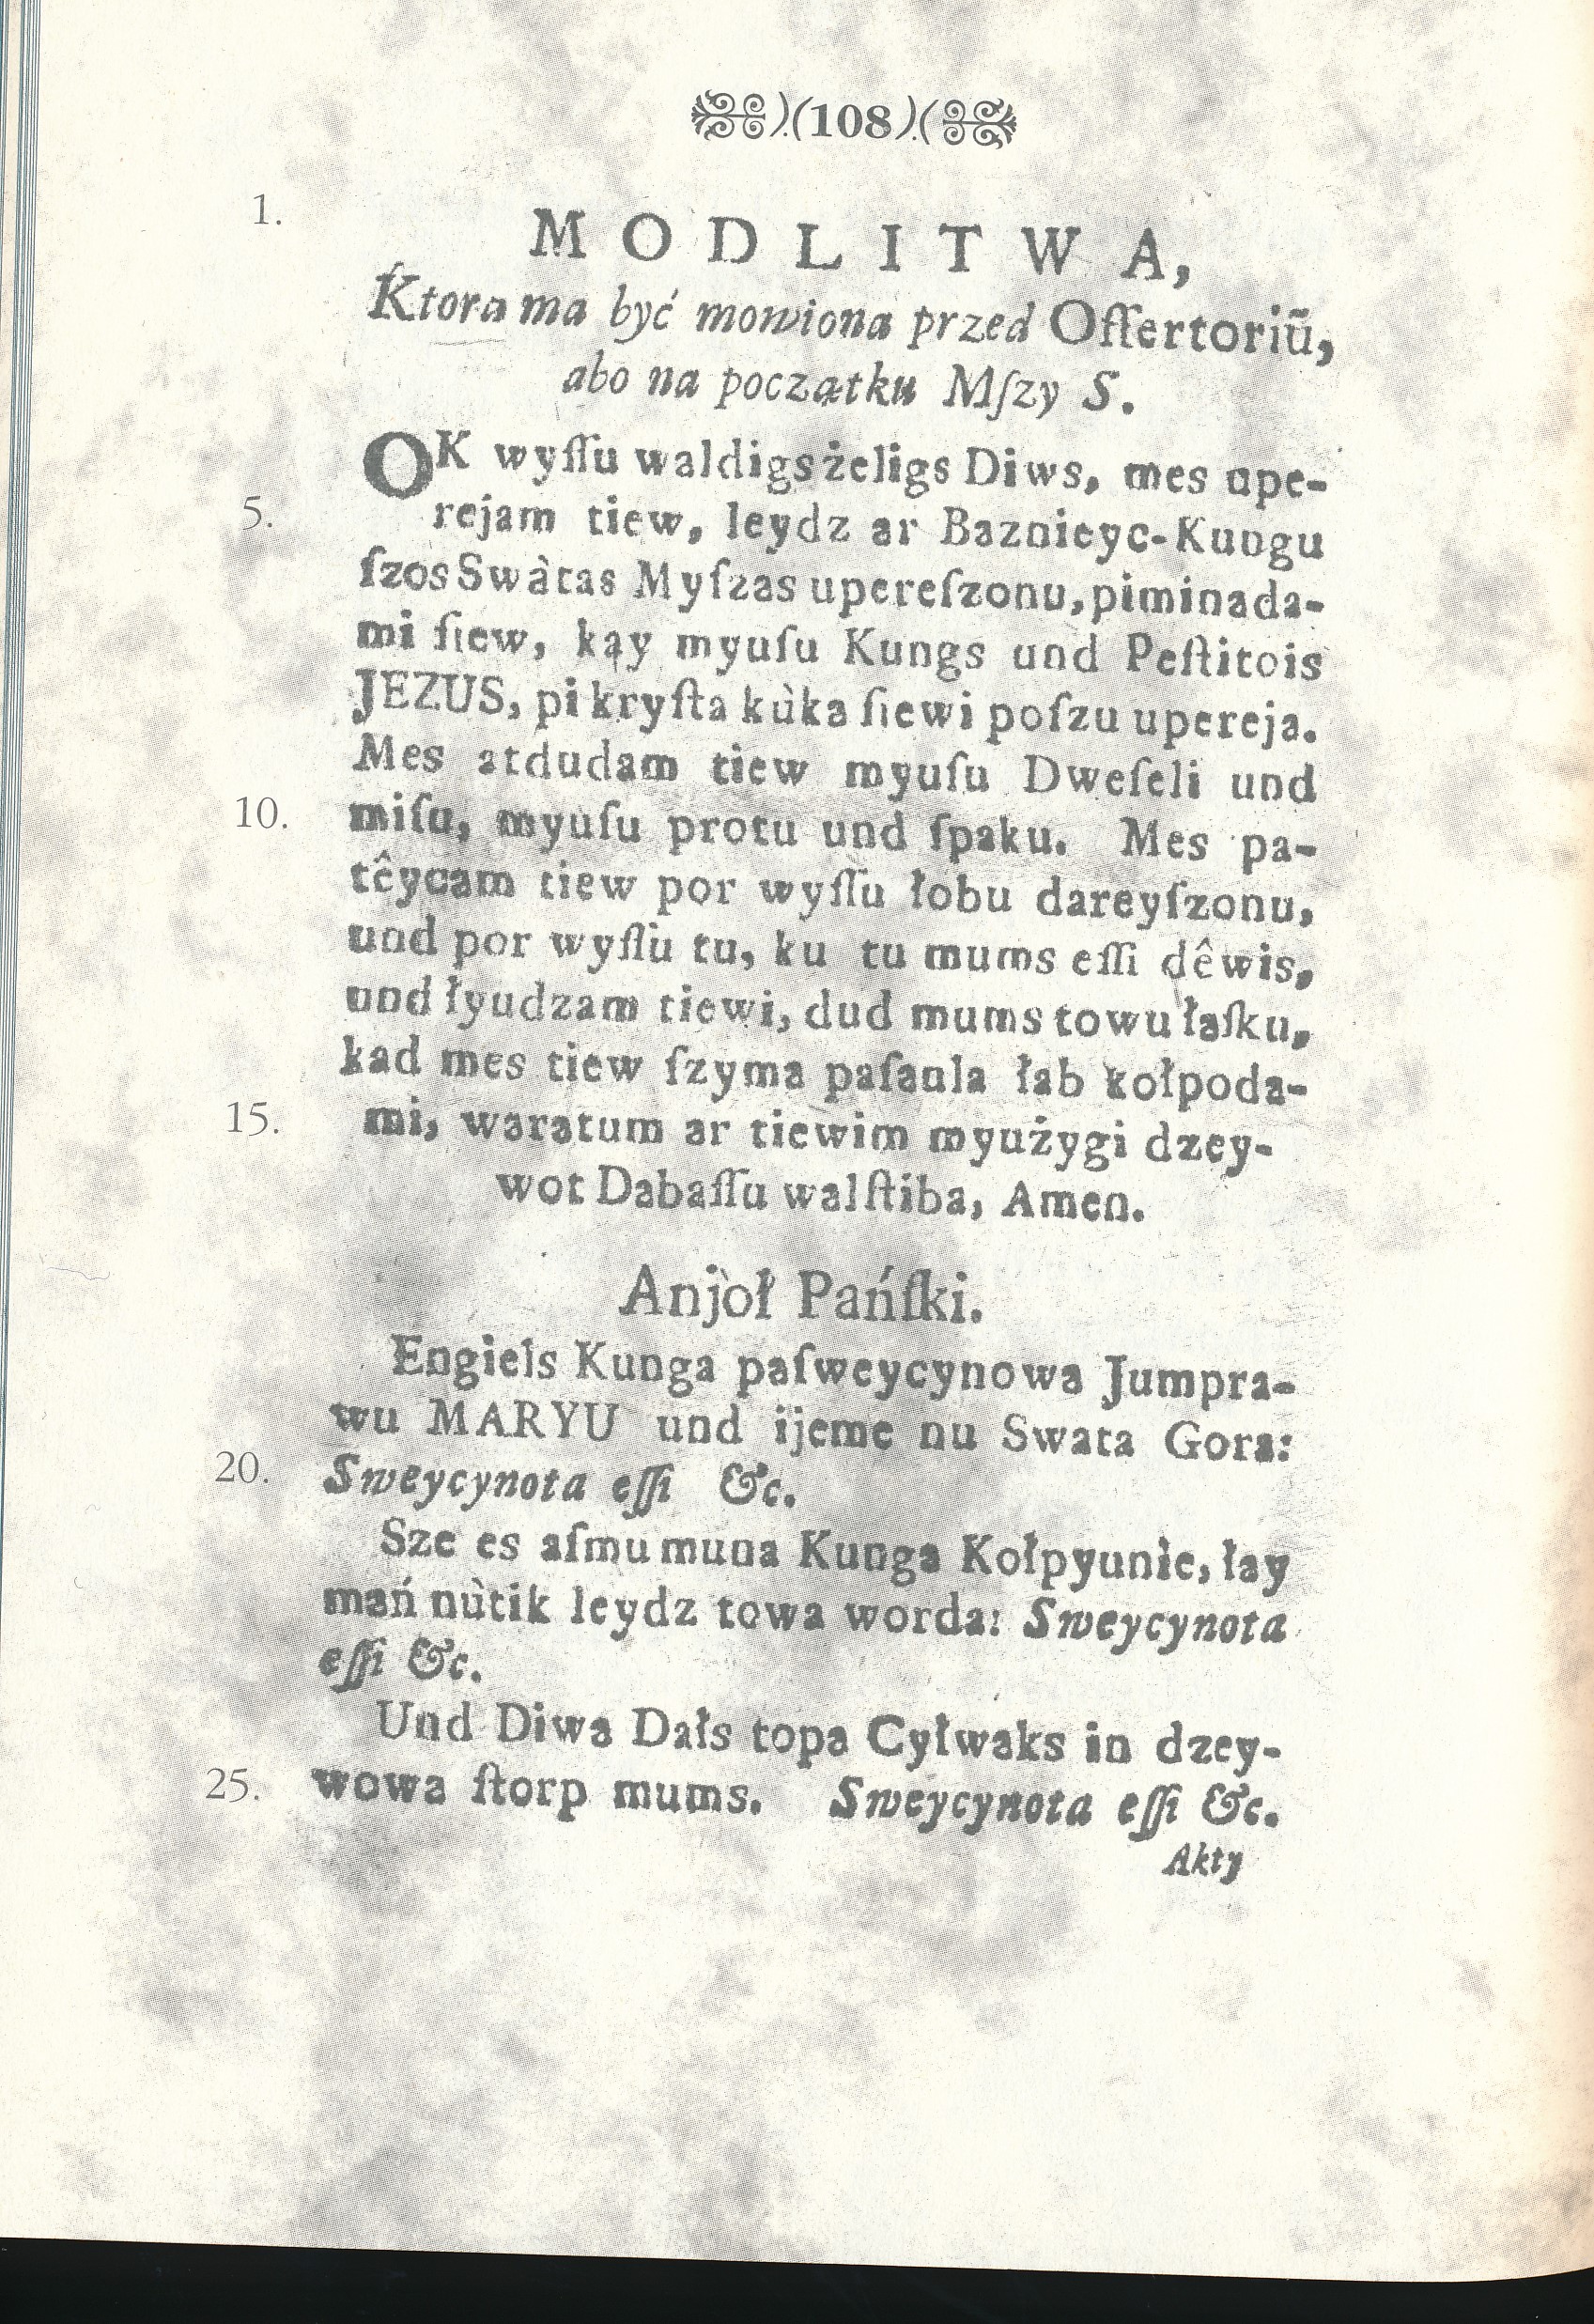 ).(108).(
1.
M O D L I T W A,
Ktora ma być mowiona przed Offertoriũ,
abo na początku Mſzy S.
OK wyſſu waldigs żeligs Diws, mes upe-
5.
rejam tiew, leydz ar Baznieyc-Kungu
ſzos Swàtas Myſzas upereſzonu, piminada-
mi ſiew, kąy myuſu Kungs und Peſtitois
JEZUS, pi kryſta kùka ſiewi poſzu upereja.
Mes atdudam tiew myuſu Dweſeli und
10.
miſu, myuſu protu und ſpaku. Mes pa-
têycam tiew por wyſſu łobu dareyſzonu,
und por wyſſu tu, ku tu mums eſſi dêwis,
und łyudzam tiewi, dud mums towu łaſku,
kad mes tiew ſzyma paſaula łab kołpoda-
15.
mi, waratum ar tiewim myużygi dzey-
wot Dabaſſu walſtiba, Amen.
Anjoł Pańſki.
Engiels Kunga paſweycynowa Jumpra-
wu MARYU und ijeme nu Swata Gora:
20.
Sweycynota eſſi &c.
Sze es aſmu muna Kunga Kołpyunie, łay
mań nùtik leydz towa worda: Sweycynota
eſſi &c.
Und Diwa Dałs topa Cyłwaks in dzey-
25.
wowa ſtorp mums. Sweycynota eſſi &c.
Akty